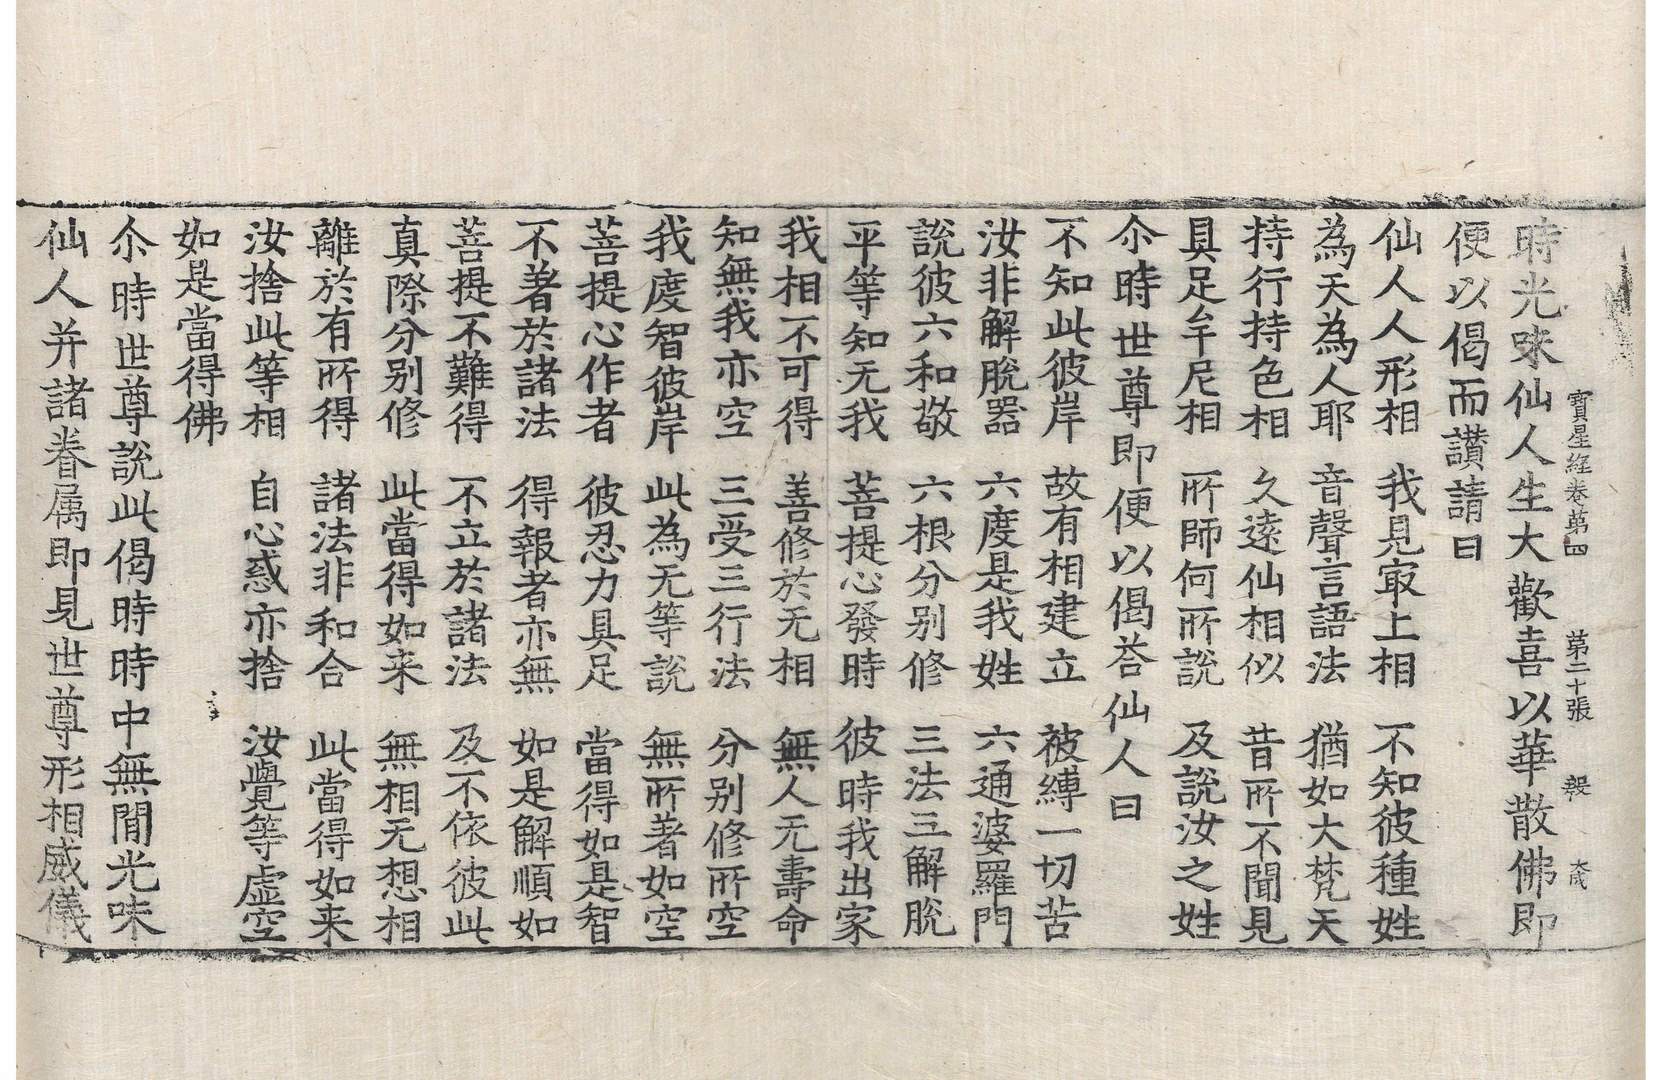 寶星經卷第四 第二十張 㲄 大成
時光味仙人生大歡喜以華散佛即
便以偈而讃請曰
仙人人形相 我見㝡上相 不知彼種姓
為天為人耶 音聲言語法 猶如大梵天
持行持色相 久遠仙相似 昔所不聞見
具足牟尼相 所師何所說 及說汝之姓
尒時世尊即便以偈荅仙人曰
不知此彼岸 故有相建立 被縛一切苦
汝非解脫器 六度是我姓 六通婆羅門
說彼六和敬 六根分别修 三法三解脫
平等知无我 菩提心發時 彼時我出家
我相不可得 善修於无相 無人无壽命
知無我亦空 三受三行法 分别修所空
我度智彼岸 此為无等說 無所著如空
菩提心作者 彼忍力具足 當得如是智
不著於諸法 得報者亦無 如是解順如
菩提不難得 不立於諸法 及不依彼此
真際分别修 此當得如来 無相无想相
離於有所得 諸法非和合 此當得如来
汝捨此等相 自心惑亦捨 汝覺等虛空
如是當得佛
尒時世尊說此偈時時中無間光味
仙人并諸眷属即見世尊形相威儀